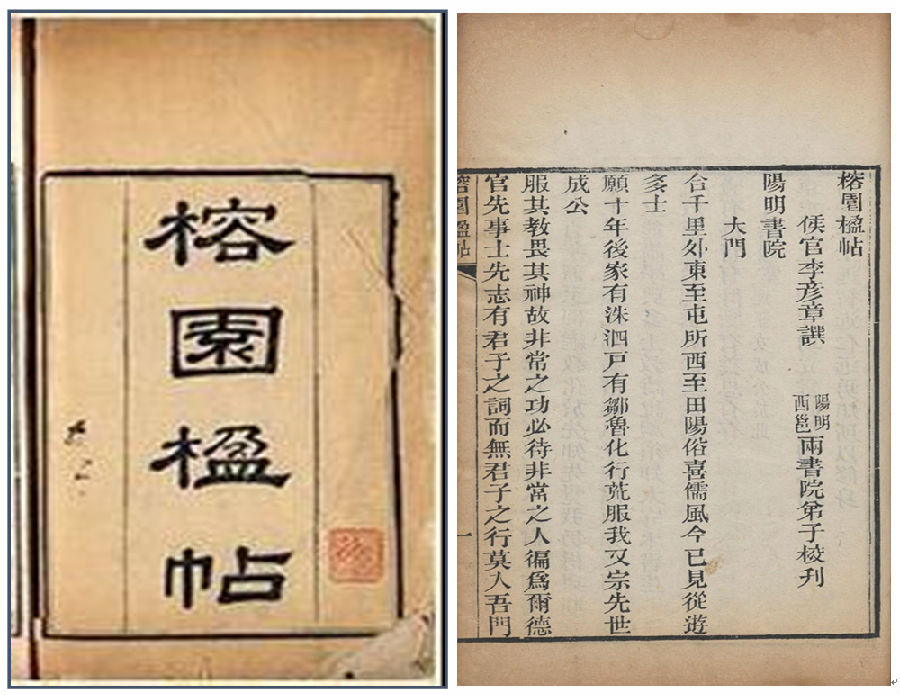 榕園楹帖
榕園楹帖
侯官李彥章譔 陽明西邕兩書院弟子校刋
陽明書院
大門
合千里外東至屯所西至田陽俗喜儒風今已見從遊
多士
願十年後家有洙泗戸有鄒魯化行荒服我又宗先世
成公
服其教畏其神故非常之功必待非常之人徧爲爾德
官先事士先志有君子之詞而無君子之行莫入吾門
榕園楹帖 一